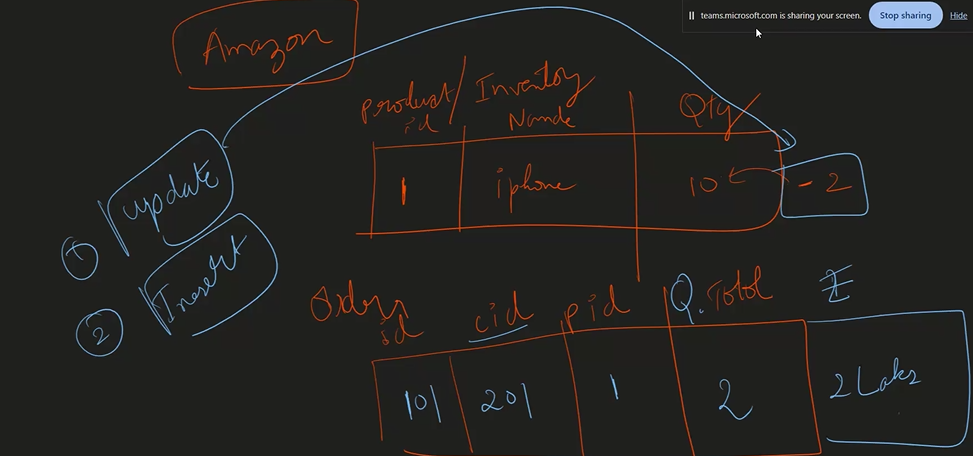 teams.microsoft.com is sharing your screen. Stop sharing Hide
Amazon
Product / Inventory
id Name Qty
1 iphone 10 - 2
update
①
Insert
②
Orders
id cid pid Q. Total ₹
101 201 1 2 2 Laks